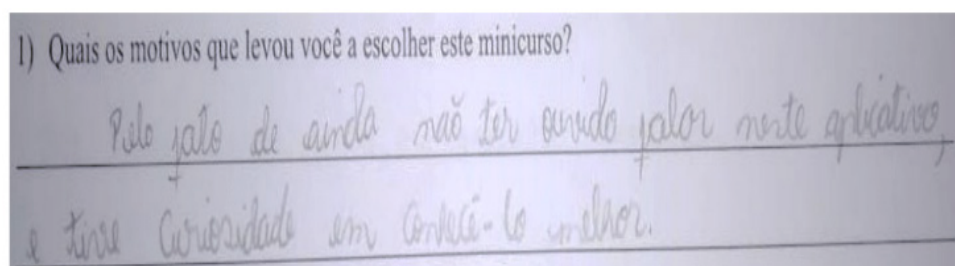 1) Quais os motivos que levou você a escolher este minicurso?
Pelo fato de ainda não ter ouvido falar neste aplicativo,
e tive curiosidade em conhecê-lo melhor.